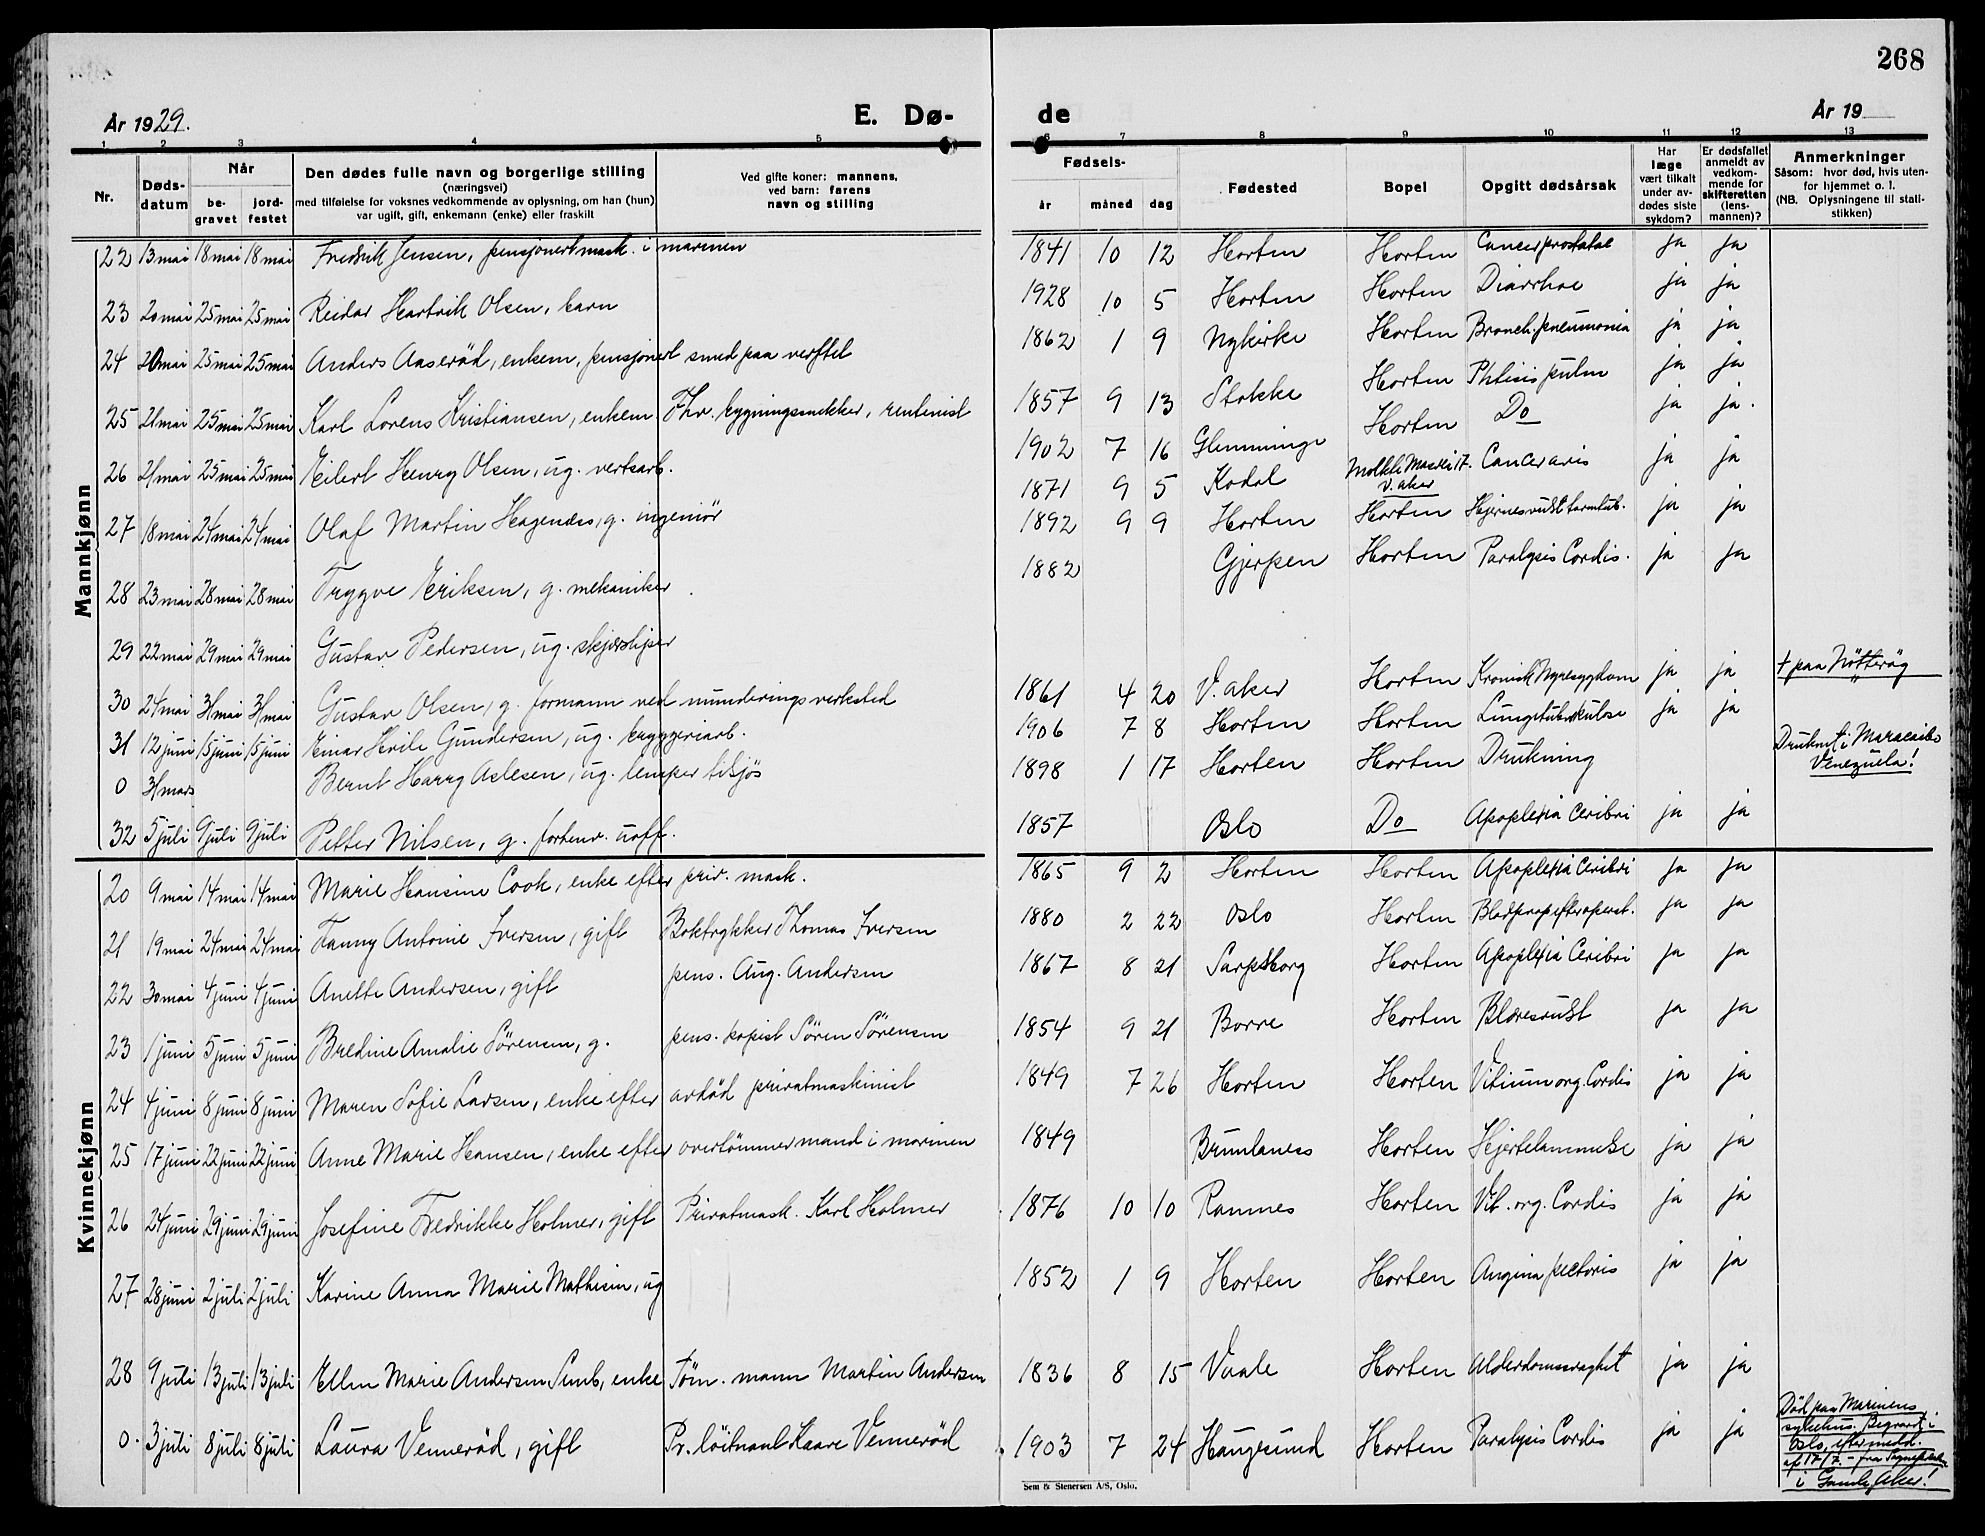 268
År 1929.
E. Dø-
de
År 19
1 2 3 4 5 6 7 8 9 10 11 12 13
Nr.
Døds-
datum
Når
be-
gravet
jord-
festet
Den dødes fulle navn og borgerlige stilling
(næringsvei)
med tilføielse for voksnes vedkommende av oplysning, om han (hun)
var ugift, gift, enkemann (enke) eller fraskilt
Ved gifte koner: mannens,
ved barn: farens
navn og stilling
Fødsels-
år måned dag
Fødested
Bopel
Opgitt dødsårsak
Har
læge
vært tilkalt
under av-
dødes siste
sykdom?
Er dødsfallet
anmeldt av
vedkom-
mende for
skifteretten
(lens-
mannen)?
Anmerkninger
Såsom: hvor død, hvis uten-
for hjemmet o. l.
(NB. Oplysningene til stati-
stikken)
Mannkjønn
22 13 mai 18 mai 18 mai Fredrik Jensen, pensjonert mask. i marinen 1841 10 12 Horten Horten Cancer prostatae ja ja
23 20 mai 25 mai 25 mai Reidar Hartvik Olsen, barn 1928 10 5 Horten Horten Diarrhoe ja ja
24 20 mai 25 mai 25 mai Anders Aaserød, enkem, pensjonert smed paa verftet 1862 1 9 Nykirke Horten Bronch. pneumonia ja ja
25 21 mai 25 mai 25 mai Karl Lorens Kristiansen, enkem. Fhv. bygningssnekker, rentenist 1857 9 13 Stokke Horten Phtisis pulm ja ja
26 21 mai 25 mai 25 mai Eilert Henry Olsen, ug. verksarb. 1902 7 16 Glemminge Horten Do ja ja.
27 18 mai 24 mai 24 mai Olaf Martin Hagenæs, g. ingeniör 1871 9 5 Kodal V. aker Cancer ja ja
28 23 mai 28 mai 28 mai Trygve Eriksen, g. mekaniker 1892 9 9 Horten Horten ja ja
29 22 mai 29 mai 29 mai Gustav Pedersen, ug. skjærsliper 1882 Gjerpen Horten Paralysis Cordis. ja ja + paa Nötteröy
30 24 mai 31 mai 31 mai Gustav Olsen, g. formann ved munderings verksted 1861 4 20 V. aker Horten Kronisk Nyresygdom ja ja
31 12 juni 15 juni 15 juni Einar Hvile Gundersen, ug. bryggeriarb. 1906 7 8 Horten Horten Lungetuberkulose ja ja
0 31 mars Bernt Harry Aslesen, ug. lemper tilsjøs 1898 1 17 Horten Horten Drukning Druknet i Maracaibo
Venezuela!
32 5 juli 9 juli 9 juli Petter Nilsen, g. forhenv. uoff. 1857 Oslo Do Apoplexia Ceribri ja ja
Kvinnekjønn
20 9 mai 14 mai 14 mai Marie Hansine Cook, enke efter priv. mask. 1865 9 2 Horten Horten Apoplexia Ceribri ja ja
21 19 mai 24 mai 24 mai Fanny Antonie Iversen, gift Boktrykker Thomas Iversen 1880 2 22 Oslo Horten Blodprop efter operat. ja ja
22 30 mai 4 juni 4 juni Anette Andersen, gift pens. Aug. Andersen 1867 8 21 Sarpsborg Horten Apoplexia Ceribri ja ja
23 1 juni 5 juni 5 juni Bredine Amalie Sörensen, g. pens. kopist Sören Sörensen 1854 9 21 Borre Horten Blæresvulst ja ja
24 4 juni 8 juni 8 juni Maren Sofie Larsen, enke efter avdöd privatmaskinist 1849 7 26 Horten Horten Vitium org. Cordis ja ja
25 17 juni 22 juni 22 juni Anne Marie Hansen, enke efter overtömmermand i marinen 1849 Brunlanes Horten Hjertelammelse ja ja
26 24 juni 29 juni 29 juni Josefine Fredrikke Holmer, gift Privatmask. Karl Holmer 1876 10 10 Ramnes Horten Vit. org. Cordis ja ja
27 28 juni 2 juli 2 juli Karine Anna Marie Mathisen, ug 1852 1 9 Horten Horten Angina pectoris ja ja
28 9 juli 13 juli 13 juli Ellen Marie Andersen Sund, enke Töm. mann Martin Andersen 1836 8 15 Vaale Horten Alderdomssvaghet ja ja
0. 3 juli 8 juli 8 juli Laura Venneröd, gift Pr. löitnant Kaare Venneröd 1903 7 24 Haugesund Horten Paralysis Cordis ja ja
Död paa Marinens
sykehus. Begravet i
Oslo, efter medd.
af 17/7. - fra
i Gamle Aker!
Sem & Stenersen A/S, Oslo.